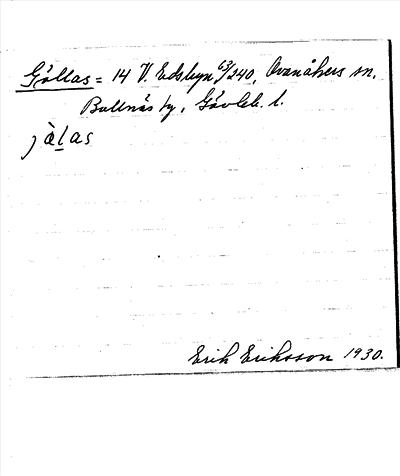 Göllas = 14 V. Edsbyn 63/240, Ovanåkers sn.
Bollnäs tg, Gävleb. l.
jàḷas
Erik Eriksson 1930.